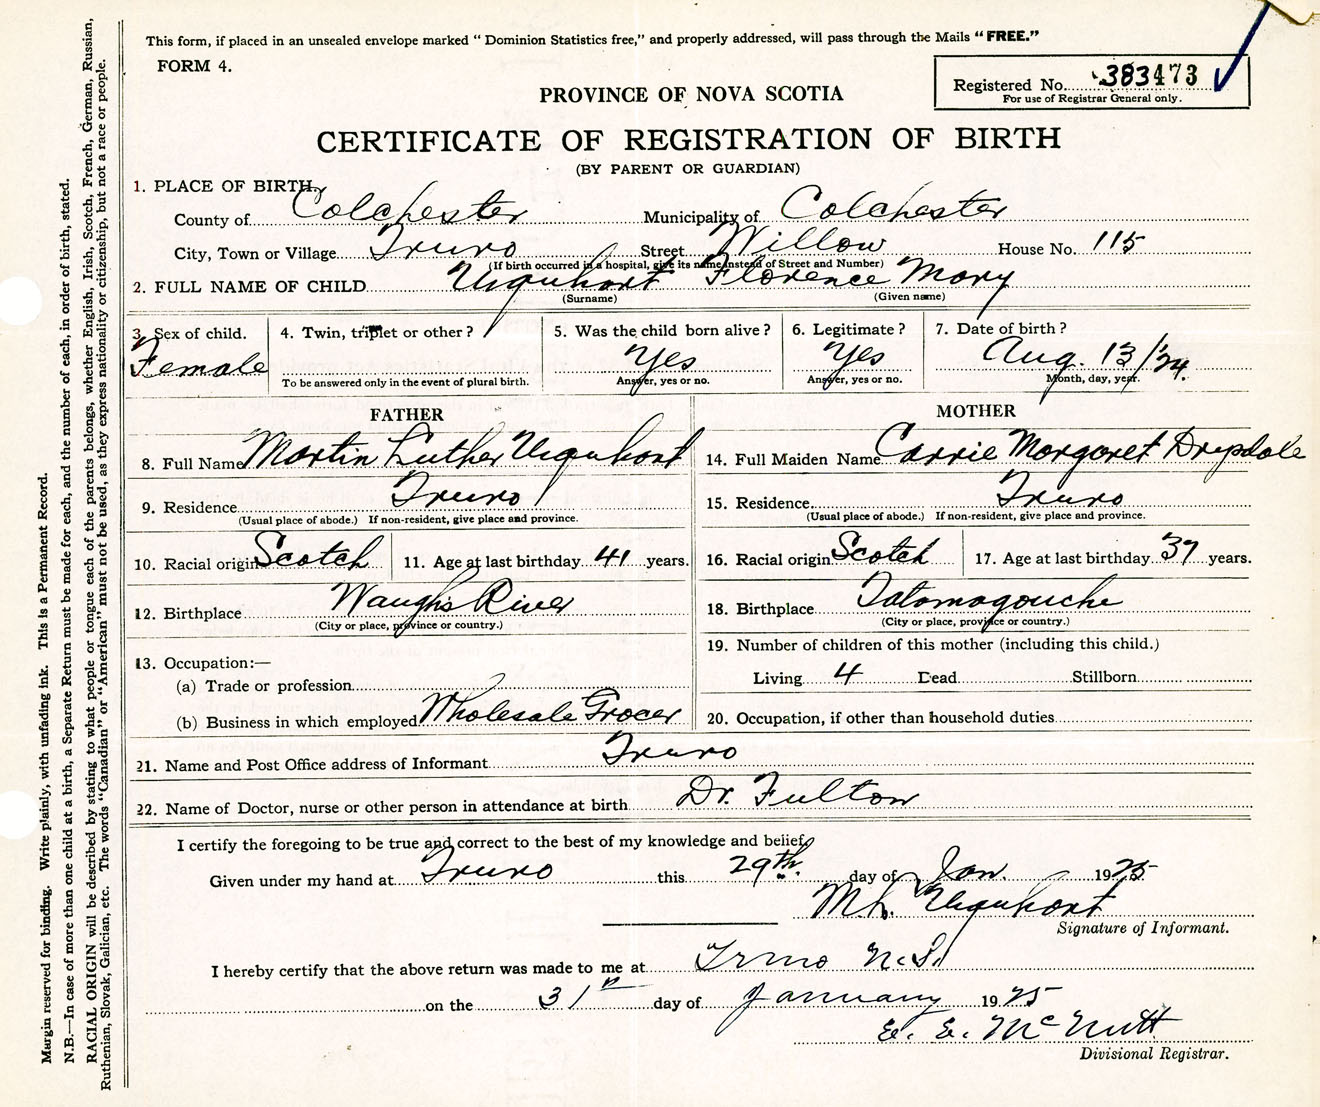 This form, if placed in an unsealed envelope marked "Dominion Statistics free," and properly addressed, will pass through the Mails "FREE."
FORM 4.
Registered No. 383473
For use of Registrar General only.
PROVINCE OF NOVA SCOTIA
CERTIFICATE OF REGISTRATION OF BIRTH
(BY PARENT OR GUARDIAN)
1. PLACE OF BIRTH,
County of Colchester Municipality of Colchester
City, Town or Village Truro Street Willow House No. 115
(If birth occurred in a hospital, give its name instead of Street and Number)
2. FULL NAME OF CHILD Urquhart Florence Mary
(Surname) (Given name)
3. Sex of child. 4. Twin, triplet or other? 5. Was the child born alive? 6. Legitimate? 7. Date of birth?
Female Yes Yes Aug. 13/24.
To be answered only in the event of plural birth. Answer, yes or no. Answer, yes or no. Month, day, year.
FATHER MOTHER
8. Full Name Martin Luther Urquhart 14. Full Maiden Name Carrie Margaret Drysdale
9. Residence Truro 15. Residence Truro
(Usual place of abode.) If non-resident, give place and province. (Usual place of abode.) If non-resident, give place and province.
10. Racial origin Scotch 11. Age at last birthday 41 years. 16. Racial origin Scotch 17. Age at last birthday 37 years.
12. Birthplace Waugh's River 18. Birthplace Tatamagouche
(City or place, province or country.) (City or place, province or country.)
13. Occupation:— 19. Number of children of this mother (including this child.)
(a) Trade or profession Living 4 Dead Stillborn
(b) Business in which employed Wholesale Grocer 20. Occupation, if other than household duties
21. Name and Post Office address of Informant Truro
22. Name of Doctor, nurse or other person in attendance at birth Dr. Fulton
I certify the foregoing to be true and correct to the best of my knowledge and belief,
Given under my hand at Truro this 29th. day of Jan. 1925
M. L. Urquhart
Signature of Informant.
I hereby certify that the above return was made to me at Truro N.S.
on the 31st day of January 1925
E. E. McNutt
Divisional Registrar.
Margin reserved for binding. Write plainly, with unfading ink. This is a Permanent Record.
N.B.—In case of more than one child at a birth, a Separate Return must be made for each, and the number of each, in order of birth, stated.
RACIAL ORIGIN will be described by stating to what people or tongue each of the parents belongs, whether English, Irish, Scotch, French, German, Russian,
Ruthenian, Slovak, Galician, etc. The words "Canadian" or "American" must not be used, as they express nationality or citizenship, but not a race or people.